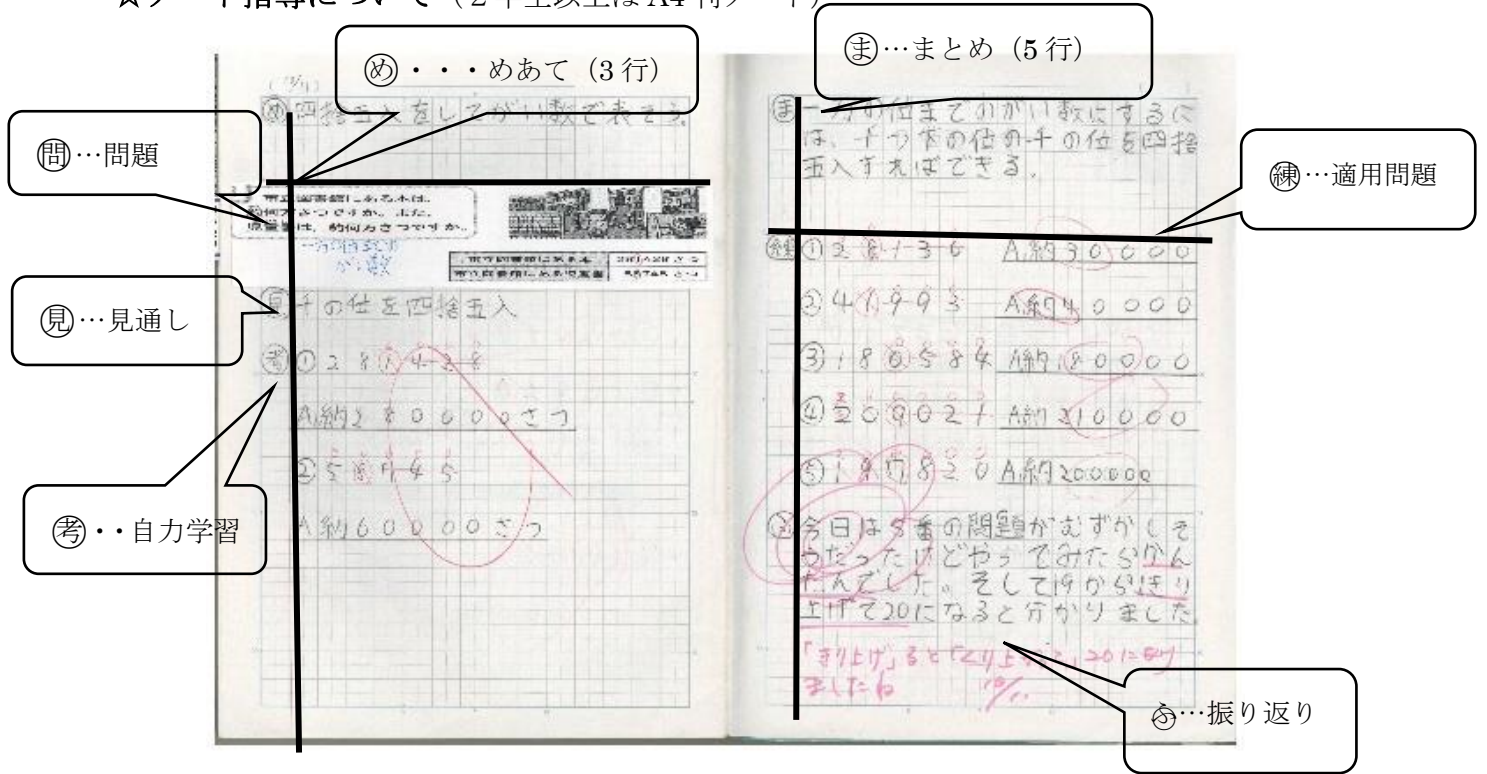 ☆ノート指導について（２年生以上は A4 判ノート）
㋱・・・めあて（3 行）
問…問題
見…見通し
考・・自力学習
㋮…まとめ（5 行）
練…適用問題
㋫…振り返り
め 四捨五入をしてがい数で表そう。
市立図書館にある本は、
約何万さつですか。また、
児童書は、約何万さつですか。
一万の位までの
がい数
市立図書館にある本
市立図書館にある児童書 55745 さつ
見 千の位を四捨五入
考 ① 281428
A.約280000さつ
② 55745
A.約60000さつ
ま 一万の位までのがい数にするに
の位の千の位を四捨
五入すればできる。
練 ① 28136 A.約30000
② 41993 A.約40000
③ 180584 A.約180000
④ 209021 A.約210000
⑤ 197820 A.約200000
ふ 今日は5番の問題がむずかしそ
うだったけどやってみたらかん
たんでした。そして19からきり
上げて20になると分かりました。
「きり上げ」ると 20になり
ましたね